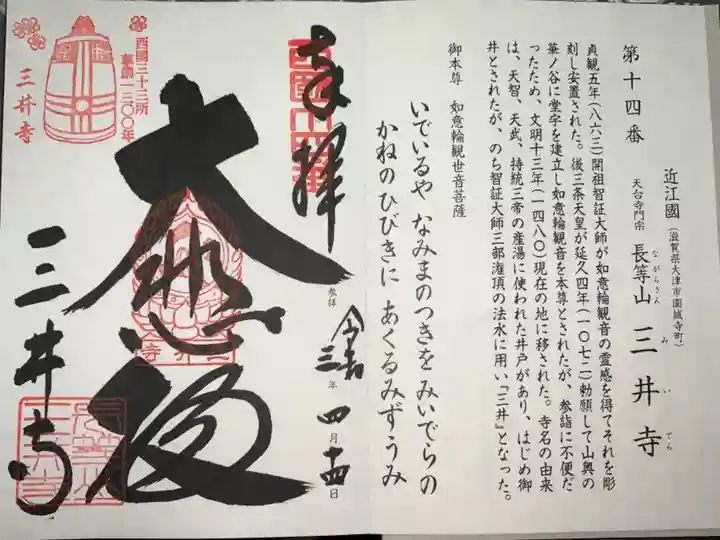 第十四番
近江國(滋賀県大津市園城寺町)
天台寺門宗 長等山 三井寺
ながらさん みいでら
貞観五年(八六三)開祖智証大師が如意輪観音の霊感を得てそれを彫
刻し安置された。後三条天皇が延久四年(一〇七二)勅願して山奥の
華ノ谷に堂宇を建立し如意輪観音を本尊とされたが、参詣に不便だ
ったため、文明十三年(一四八〇)現在の地に移された。寺名の由来
は、天智、天武、持統三帝の産湯に使われた井戸があり、はじめ御
井とされたが、のち智証大師三部潅頂の法水に用い『三井』となった。
御本尊 如意輪観世音菩薩
いでいるや なみまのつきを みいでらの
かねのひびきに あくるみずうみ
奉拝
西國十四番
参拝 令和三年四月十四日
大悲殿
三井寺
西國三十三所
草創一三〇〇年
三井寺
三井寺
長等山
三井寺